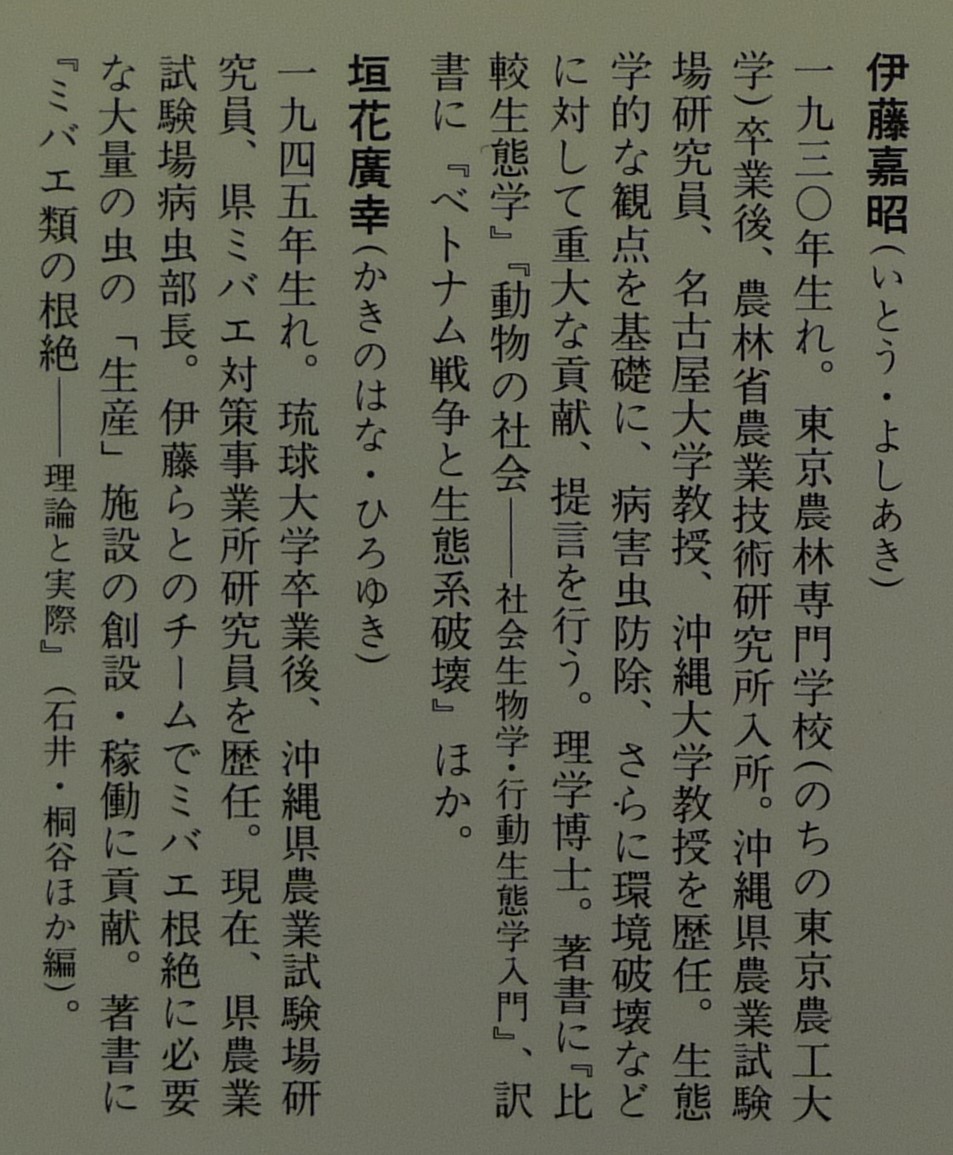 伊藤嘉昭（いとう・よしあき）
一九三〇年生れ。東京農林専門学校（のちの東京農工大
学）卒業後、農林省農業技術研究所入所。沖縄県農業試験
場研究員、名古屋大学教授、沖縄大学教授を歴任。生態
学的な観点を基礎に、病害虫防除、さらに環境破壊など
に対して重大な貢献、提言を行う。理学博士。著書に『比
較生態学』『動物の社会——社会生物学・行動生態学入門』、訳
書に『ベトナム戦争と生態系破壊』ほか。
垣花廣幸（かきのはな・ひろゆき）
一九四五年生れ。琉球大学卒業後、沖縄県農業試験場研
究員、県ミバエ対策事業所研究員を歴任。現在、県農業
試験場病虫部長。伊藤らとのチームでミバエ根絶に必要
な大量の虫の「生産」施設の創設・稼働に貢献。著書に
『ミバエ類の根絶——理論と実際』（石井・桐谷ほか編）。